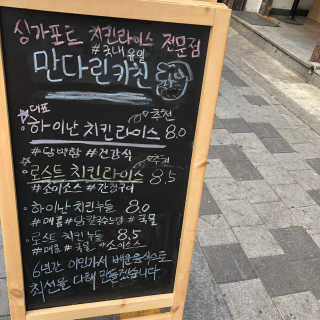 싱가포르 치킨라이스 전문점
#국내유일
만다린키친
대표 추천
하이난 치킨라이스 8.0
#담백함 #건강식
추천
로스트 치킨라이스 8.5
#소이소스 #간장구이
하이난 치킨누들 8.0
로스트 치킨누들 8.5
6년간 이민가서 배운음식으로
최선을 다해 만들겠습니다